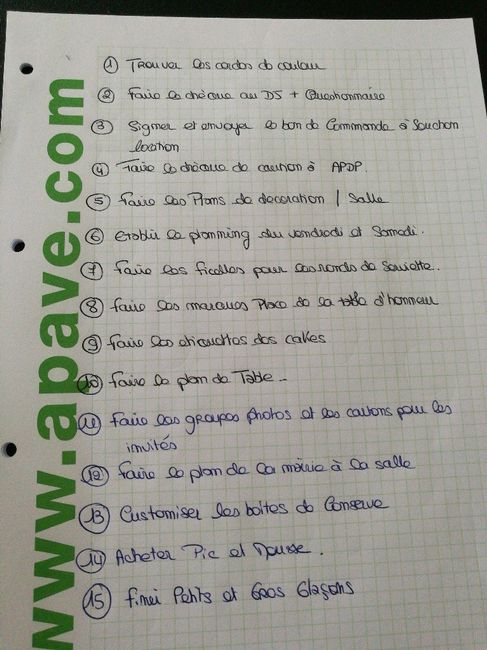 www.apave.com
1 Trouver les cordes de couleur
2 Faire le chèque au DJ + Questionnaire
3 Signer et envoyer le bon de Commande à Souchon
location
4 Faire le chèque de caution à APDP.
5 Faire les Plans de decoration / Salle
6 etablir le planning du vendredi et Samedi.
7 Faire les ficelles pour les ronds de Serviette.
8 Faire les marques Place de la table d'honneur
9 Faire les étiquettes des cakes
10 Faire le plan de Table
11 Faire les groupes photos et les cartons pour les
invités
12 Faire le plan de la mairie à la salle
13 Customiser les boites de Conserve
14 Acheter Pic et Mousse.
15 finir Petits et Gros Glaçons